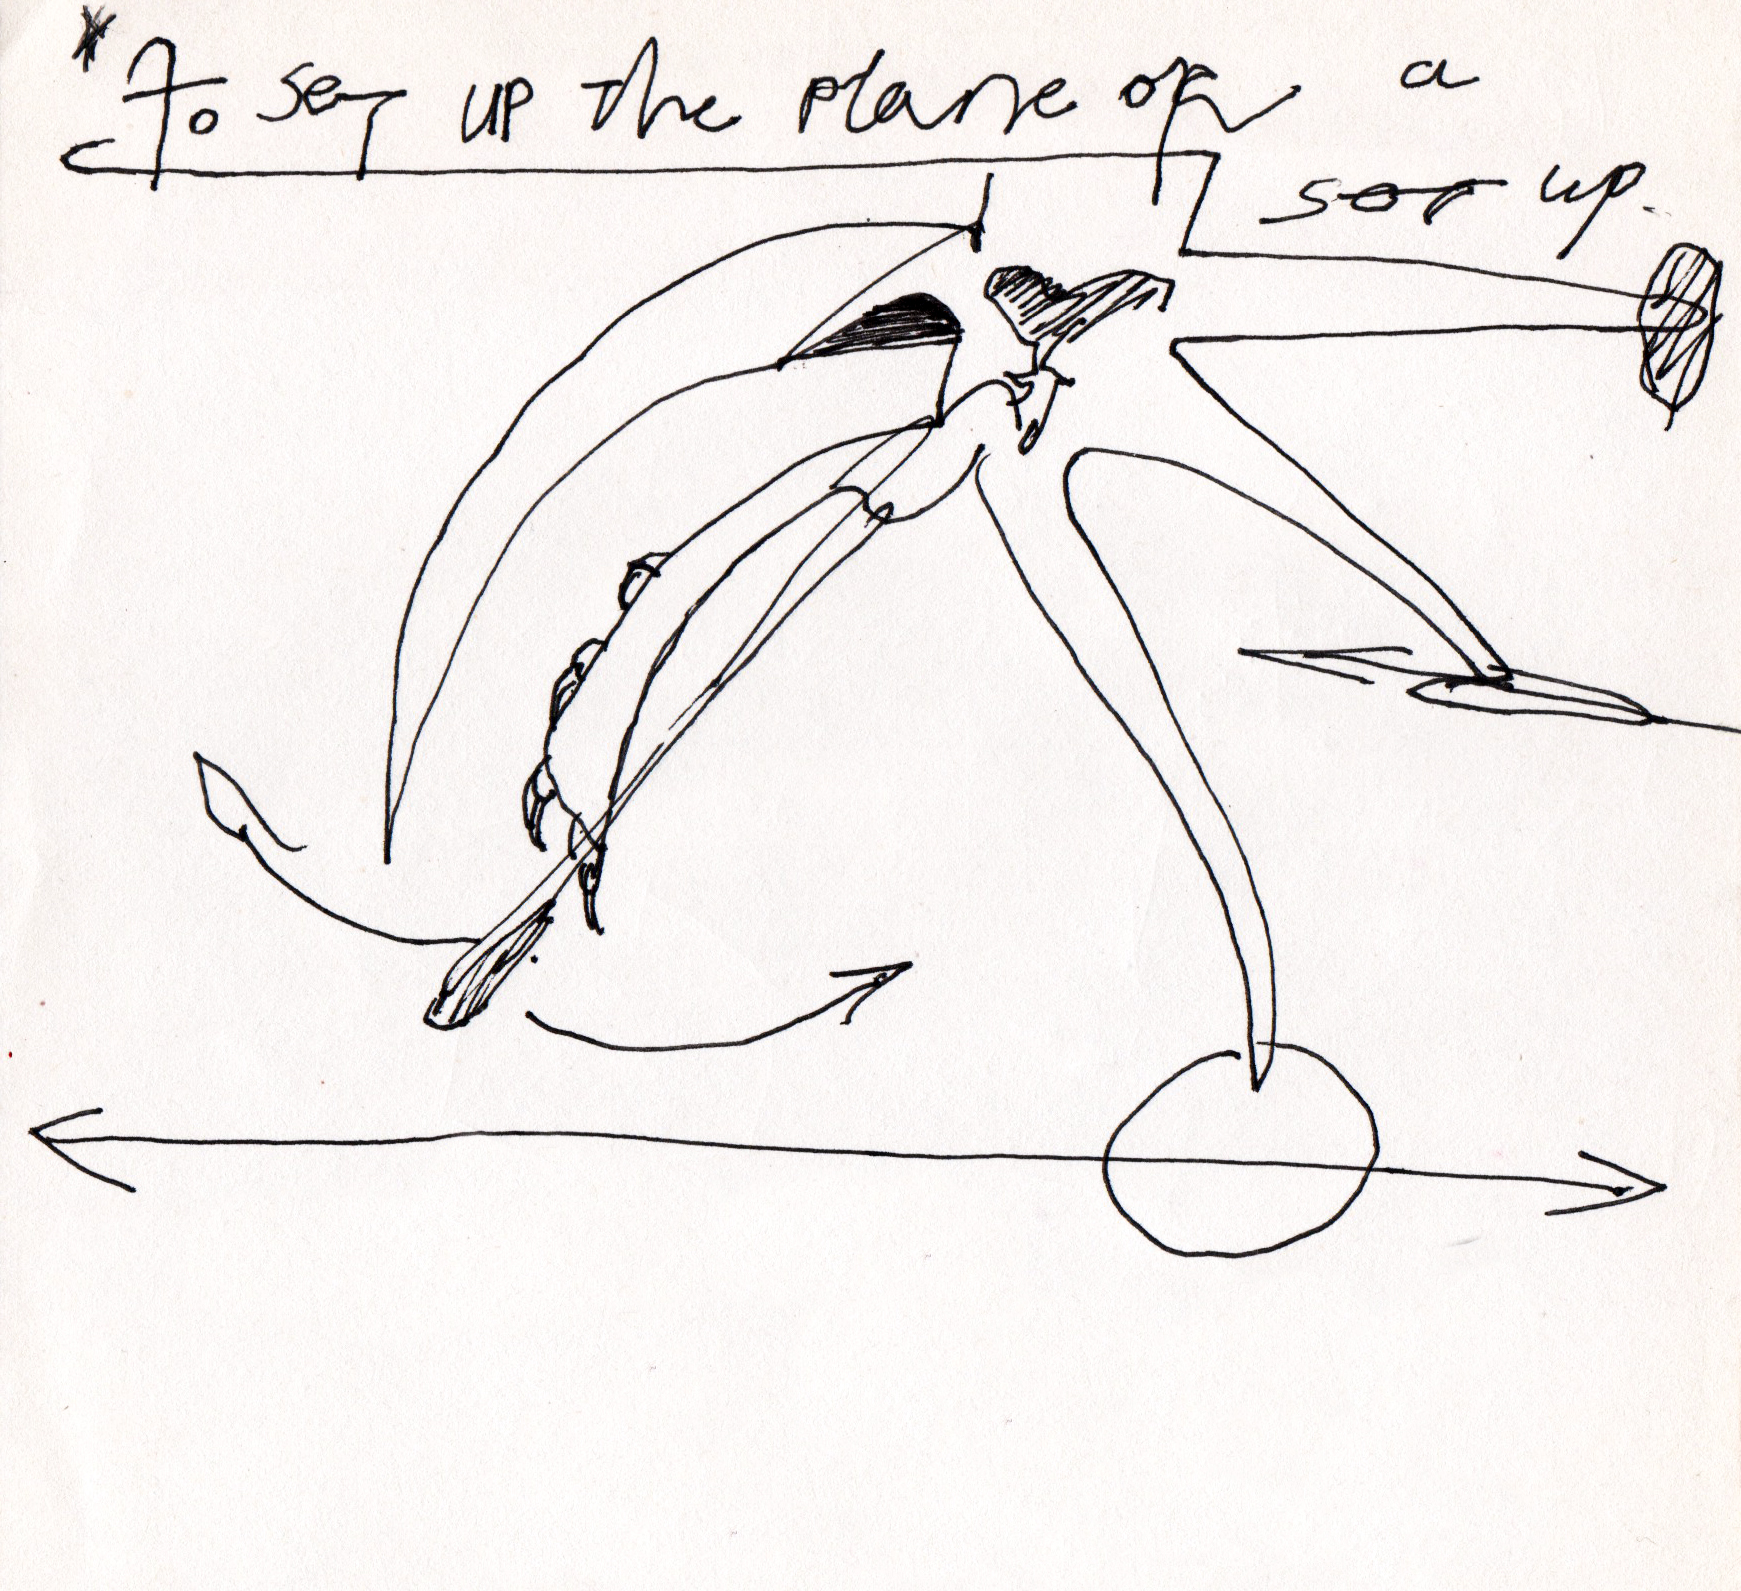 * To set up the plane of a
set up.